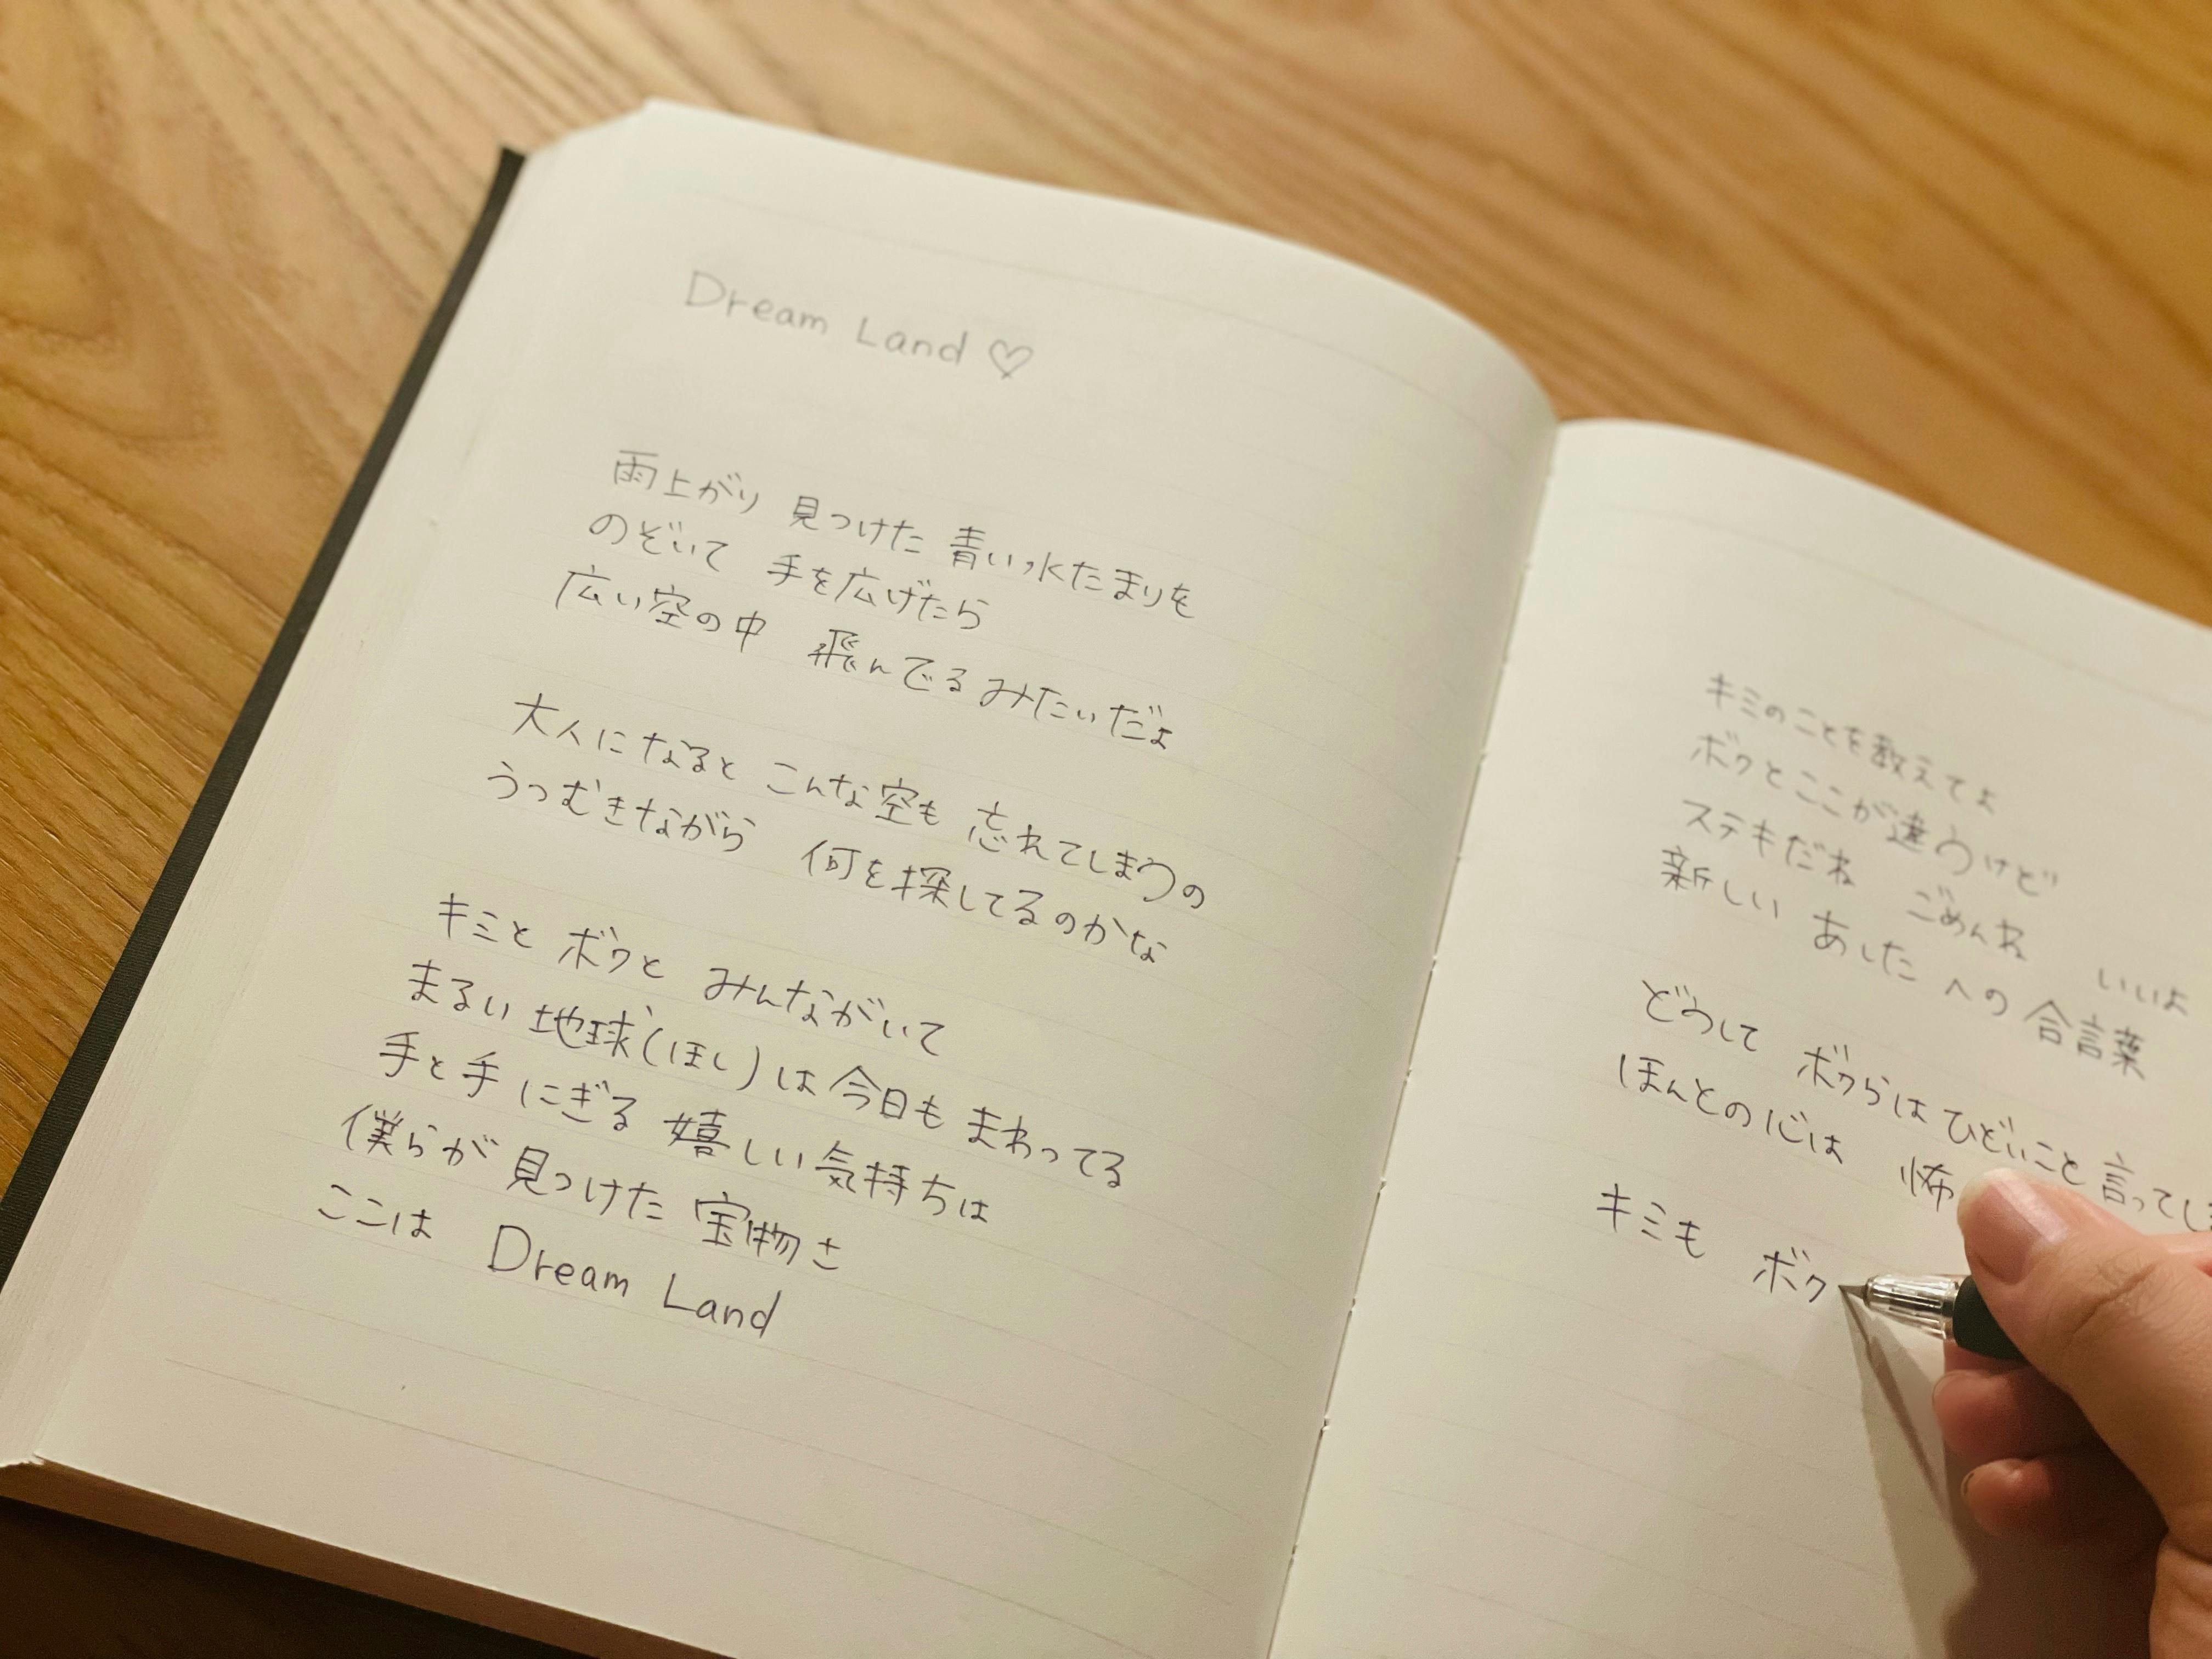 Dream Land ♡
雨上がり 見つけた 青い水たまりを
のぞいて 手を広げたら
広い空の中 飛んでるみたいだよ
大人になると こんな空も 忘れてしまうの
うつむきながら 何を探してるのかな
キミと ボクと みんながいて
まるい 地球(ほし)は 今日も まわってる
手と手 にぎる 嬉しい気持ちは
僕らが 見つけた 宝物さ
ここは Dream Land
キミのことを教えてよ
ボクとここが違うけど
ステキだね ごめんね いいよ
新しい あしたへの合言葉
どうして ボクらは ひどいこと 言ってし
ほんとの心は 怖
キミも ボク